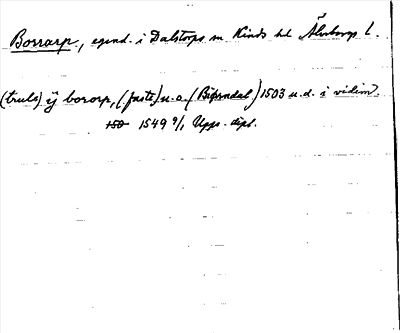 Borrarp, egend. i Dalstorps sn Kinds hd Älvsborgs l.
(truls) ij bororp, (faste) n.o. (Bifrndal) 1503 u.d. i vidim.
150 1549 9/1 Upps. dipl.